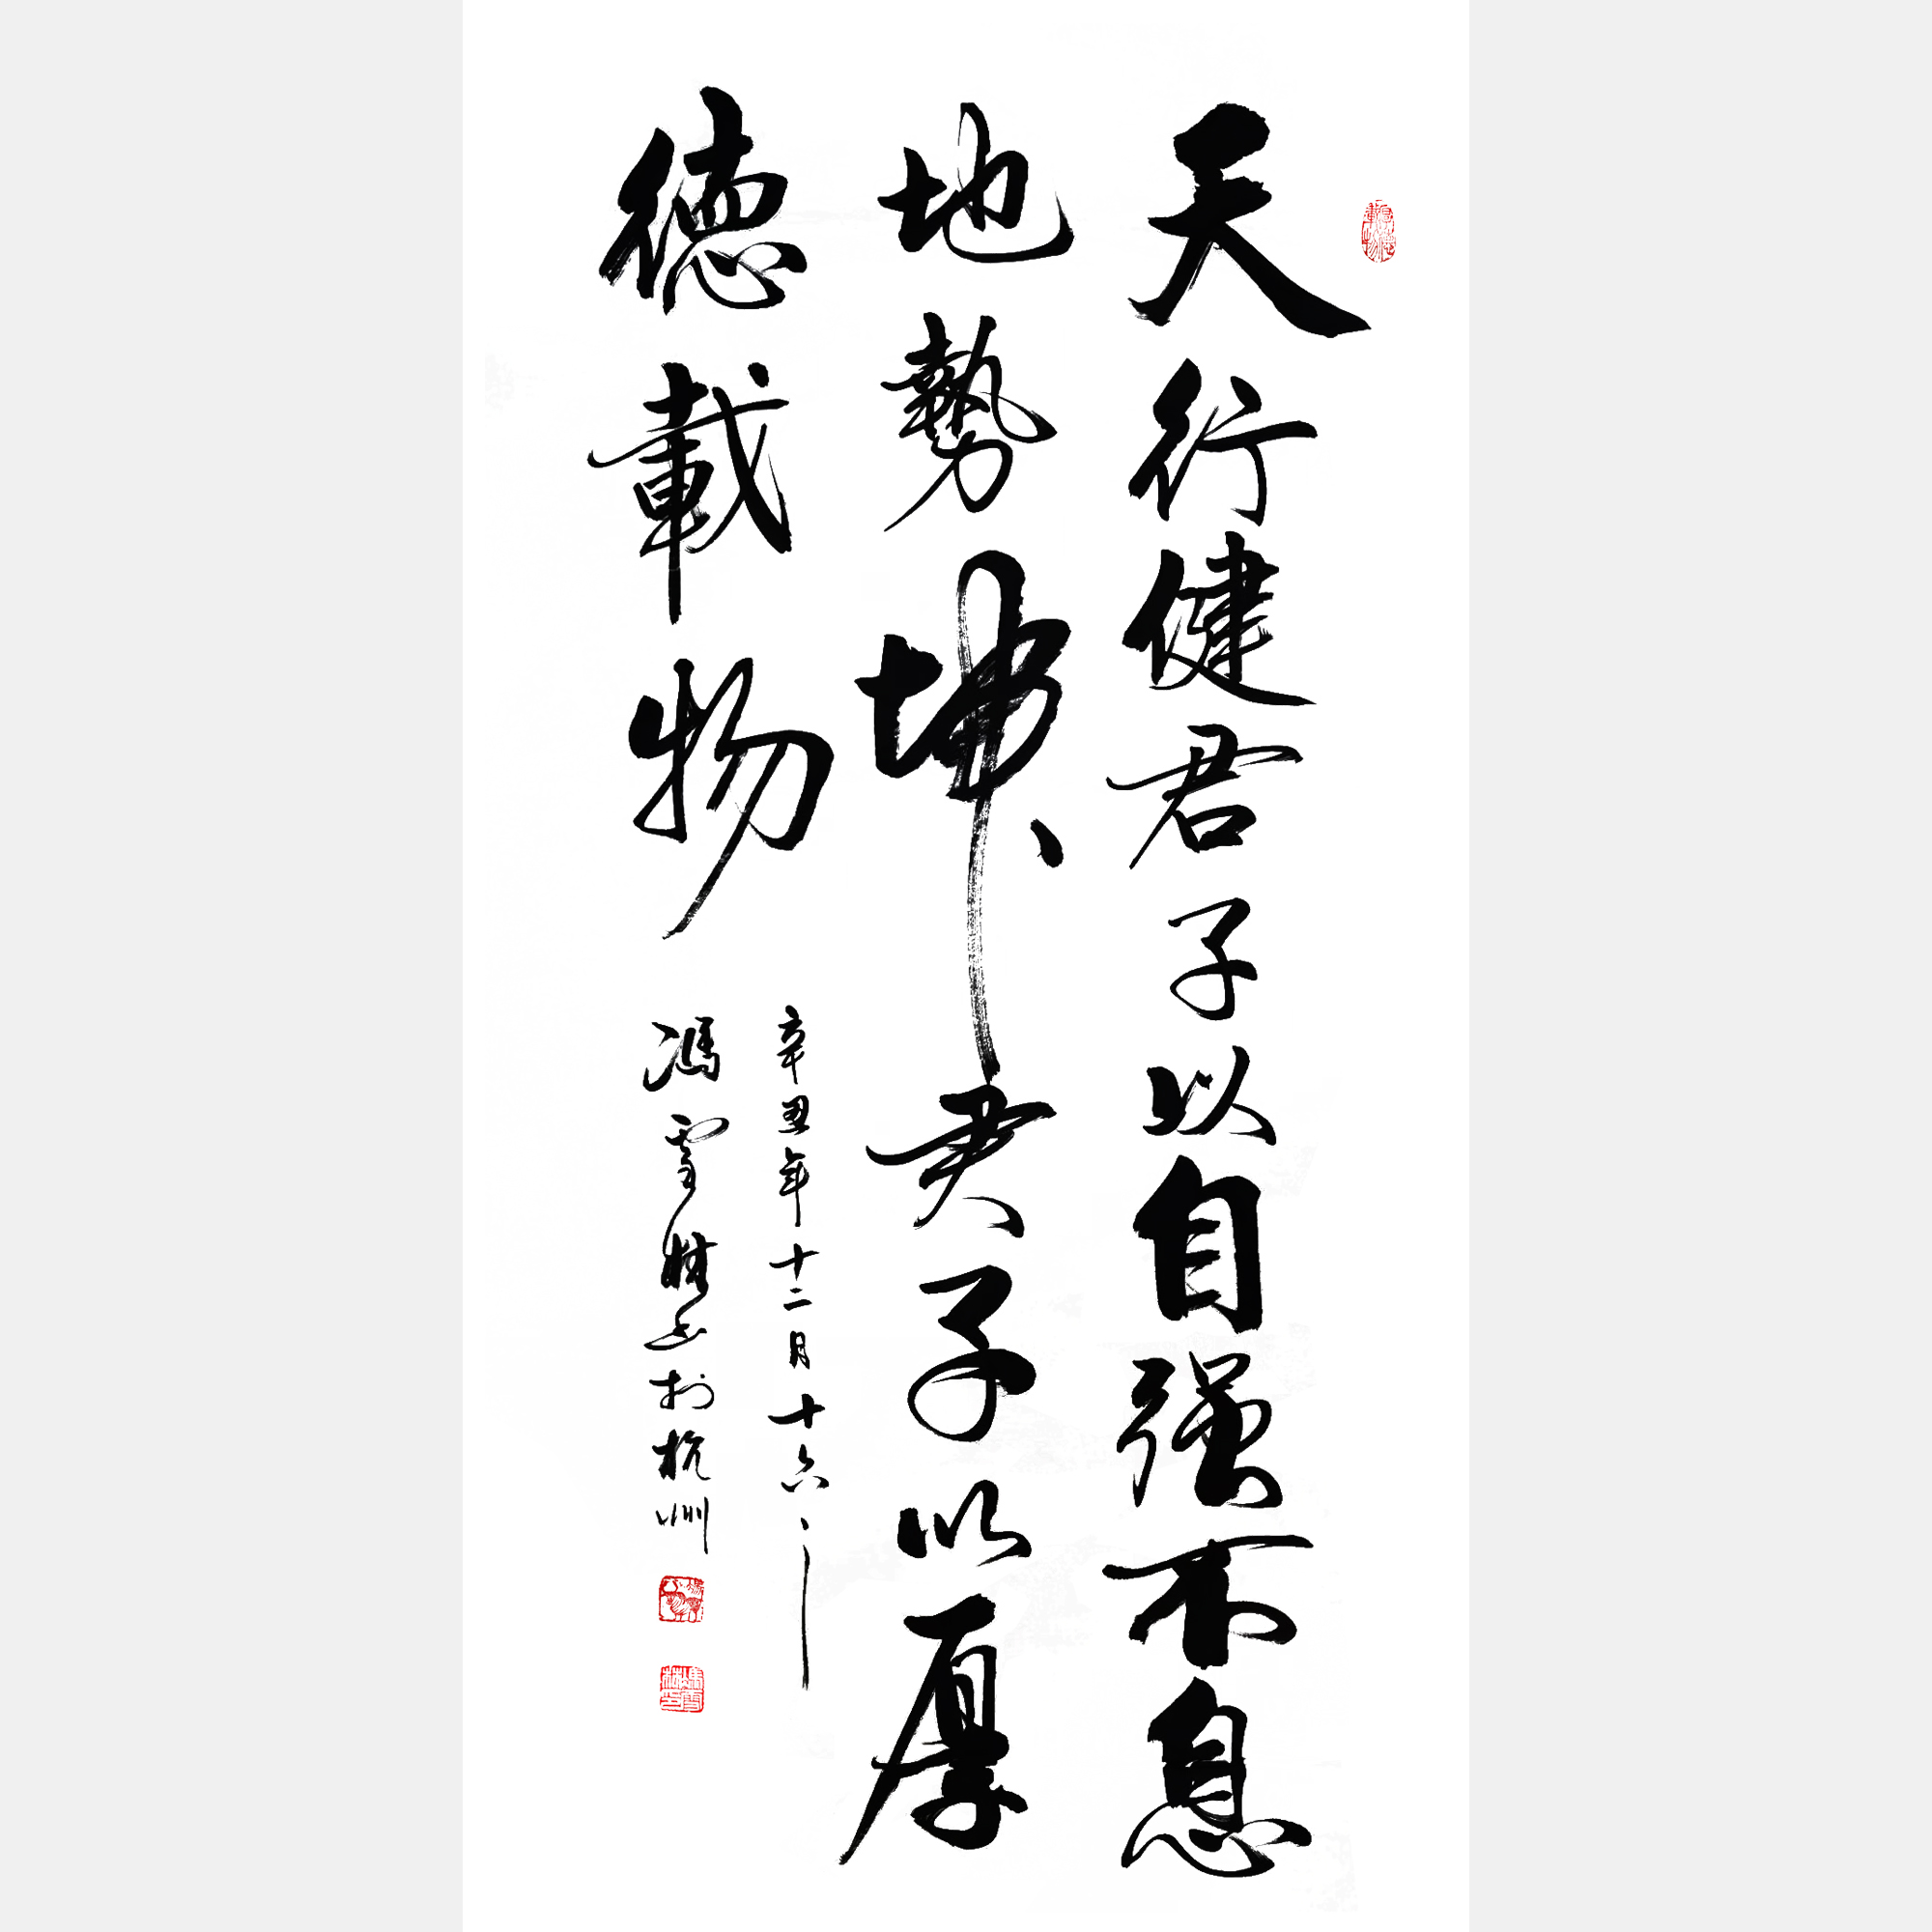 天行健君子以自强不息
地勢坤君子以厚
德載物
辛丑年十二月十六
馮雪林书於杭州